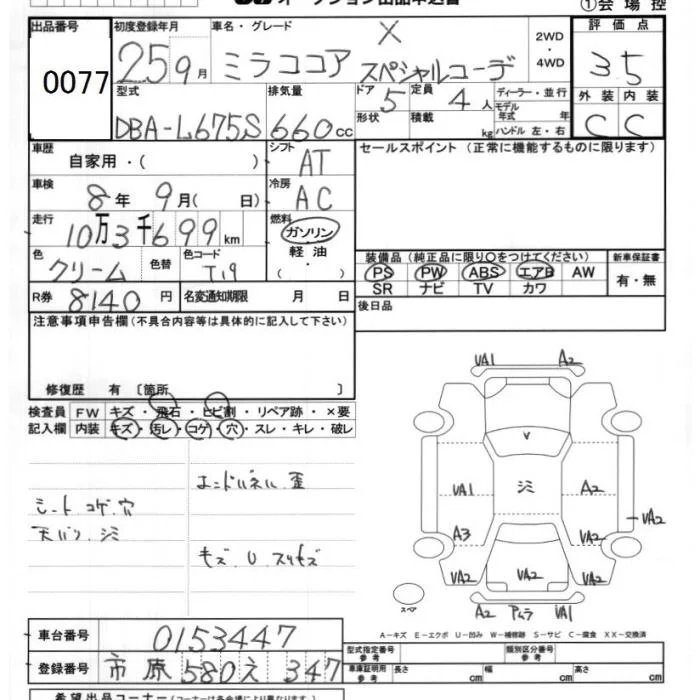 オークション出品申込書
①会場控
出品番号 0077
初度登録年月 25 9月
車名・グレード X
ミラココア スペシャルコーデ
2WD・4WD
評価点 3.5
外装 C 内装 C
型式 DBA-L675S
排気量 660cc
ドア 5 形状
定員 4人 積載 kg
ディーラー・並行
モデル年式 年
ハンドル 左・右
車歴 自家用・( )
シフト AT
セールスポイント (正常に機能するものに限ります)
車検 8年 9月( 日)
冷房 AC
走行 10万3千699km
燃料 ガソリン・軽油・( )
色 クリーム 色替
色コード T19
装備品 (純正品に限り○をつけてください) 新車保証書
PS PW ABS エアB AW 有・無
SR ナビ TV カワ
R券 8140円
名変通知期限 月 日
後日品
注意事項申告欄(不具合内容等は具体的に記入して下さい)
修復歴 有 〔箇所 〕
検査員記入欄
FW キズ・飛石・ヒビ割・リペア跡・×要
内装 キズ・汚レ・コゲ・穴・スレ・キレ・破レ
シート コゲ.穴
天バリ.シミ
エンドパネル 歪
キズ.U.スリキズ
UA1 A2
V
UA1 シミ A2
UA2
A3 UA2
UA2 UA2 UA2
スペア
A2 アムラ UA1
A-キズ E-エクボ U-凹み W-補修跡 S-サビ C-腐食 XX-交換済
車台番号 0153447
登録番号 市原 580 え 347
型式指定番号参考 類別区分番号
車庫証明用参考 長さ cm 幅 cm 高さ cm
希望出品コーナー(コーナーは各会場により異なります)